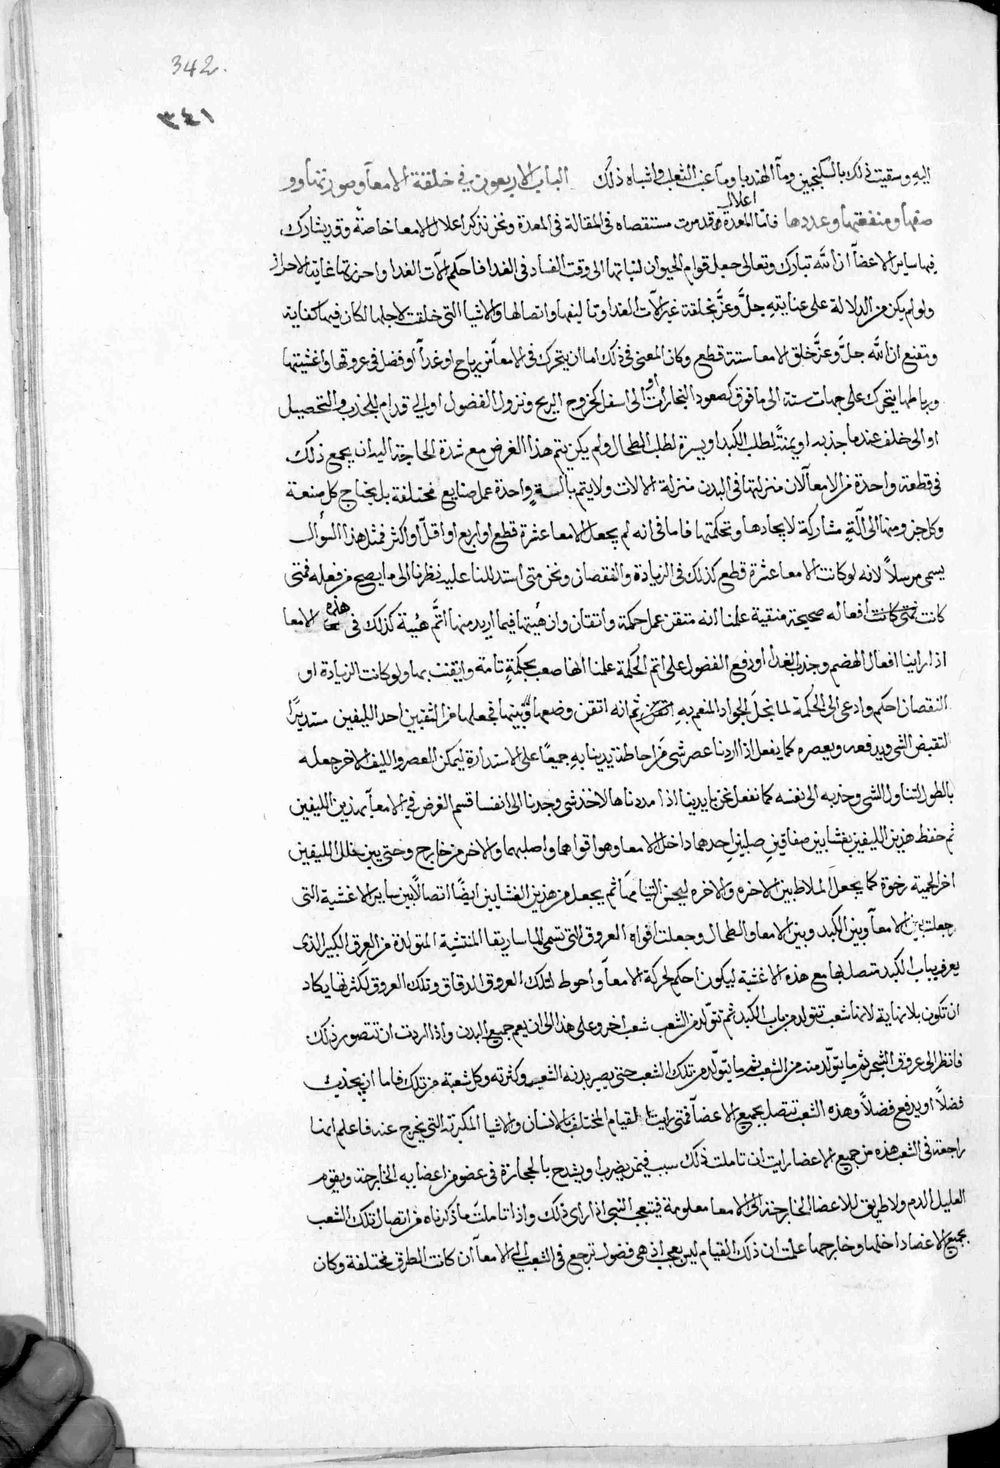 342.
٣٤١
اليه وسقيت ذلك بالسكنجبين ومآ الهندبا ومآ عنب الثعلب واشباه ذلك الباب الاربعون في خلقة الامعآ وصورتها وو
صفها ومنفعتها وعددها فامّا اعلال المعدة فقد مرت مستقصاه في المقالة في المعدة ونحن نذكر اعلال الامعا خاصة وقد يشارك
فيها ساير الاعضآ ان الله تبارك وتعالى جعل قوام الحيوان لنباتها الى وقت الفساد في الغدا فاحكم آلات الغدا واحرزها غاية الاحراز
ولو لم يكن من الدلالة على عنايته جلّ وعزّ بخلقة غير آلات الغدا وتاليفها واتصالها والاشيا التي خلقت لاجلها لكان فيها كفاية
ومقنع ان الله جلّ وعزّ خلق الامعا ستة قطع وكان المعنى في ذلك اما ان يتحرك في الامعآ من رياح او غدآ او فضل في عروقها واغشيتها
ورباطها يتحرك على جهات ستة الى ما فوق كصعود البخارات او الى اسفل كخروج الريح ونزول الفضول او الي قدام للجذب والتحصيل
او الى خلف عندما جذبه او يمنةً لطلب الكبد او يسرة لطلب الطحال ولم يكن يتم هذا الغرض مع شدة الحاجة اليه ان يجمع ذلك
في قطعة واحدة من الامعآ لان منزلتها في البدن منزلة الالات ولا يتم بآلة واحدة عمل صنايع مختلفة بل يحتاج كل صنعة
وكل جزو منها الى آلةٍ مشاركة لايجادها وتحكمتها فاما في انه لم يجعل الامعا عشرة قطع او اربع او اقلّ او اكثر فمثل هذا السوال
يسمى مرسلاً لانه لو كانت الامعا عشرة قطع كذلك في الزيادة والنقصان ونحن متى استدللنا عليه نظرنا الى ما يصح من فعله فمتى
كانت فمتى كانت افعاله صحيحة متقية علمنا انه متقن عمل حكمة واتقان وان هيئتها فيما اريد منها اتمّ هيئة كذلك في هذه الامعا
اذا راينا افعال الهضم وجذب الغدا ودفع الفضول على اتم الحكمة علمنا انها صعب بحكمةٍ تامة وايقنت بها ولو كانت الزيادة او
النقصان احكم وادعى الى الحكمة لما بخلَ الجواد المنعم به ثم انه اتقن وضعها وتبينها فجعلها من الثقبين احد الليفين مستديرًا
لتقبض الشي ويدفعه ويعصره كما يفعل اذا اردنا عصر شي من احاطة يدينا به جميعًا على الاستدارة ليمكن العصر والليف الاخر جعله
بالطول لتناول الشي وجذبه الى نفسه كما نفعل نحن بايدينا اذا مددناها لاخذ شي وجذبنا الى انفسنا قسم الغرض في الامعآ بهذين الليفين
ثم حفظ هذين الليفين بغشايين صفاقين صلبين احدهما داخل الامعا وهو اقواهما واصلبهما والاخر من خارج وحتى بين خلل الليفين
اخر الحمية رخوة كما يجعلَ الملاط بين الاخره والاخره ليحسن التيامها ثم يجعل من هذين الغشايين ايضًا اتصالاً بين ساير الاغشية التى
جعلت بين الامعآ وبين الكبد وبين الامعا والطحال وجعلت افواه العروق التى تسمى الماساريقا المنتشية المتولدة من العرق الكبير الذى
يعرف بباب الكبد متصل بها مع هذه الاغشية ليكون احكم لحركة الامعآ واحوط لتلك العروق الدقاق وتلك العروق لكثرتها يكاد
ان تكون بلا نهاية لانها شعب تتولد من باب الكبد ثم تتولد من الشعب شعب اخر وعلى هذا الى ان يعم جميع البدن واذا اردت ان تتصور ذلك
فانظر الى عروق الشجر ثم ما يتولد منه من الشعب ثم ما يتولد من تلك الشعب حتى يصير بدنه الشعب وكثرته وكل شعبة من تلك فاما ان يجذب
فضلاً او يدفع فضلاً وهذه الشعب تتصل بجميع الاعضآ فمتى رايت القيام المختلف بالانسان والاشيا المكبرته التي يخرج عنه فاعلم انها
راجعة في الشعب هذه من جميع الاعضا رايت ان تاملت ذلك سبب فيمن يضرب او يشدخ بالحجارة في عضو من اعضايه الخارجة ويقوم
العليل الدم ولا طريق للاعضا الخارجة الى الامعا معلومة فيتعجب النبي اذا راى ذلك واذا تاملت ما ذكرناه من اتصال تلك الشعب
بجميع الاعضا داخلها وخارجها علمت ان ذلك القيام ليس بعجب اذ هي فضول ترجع في الشعب الى الامعآ ان كانت الطرق مختلفة وكان